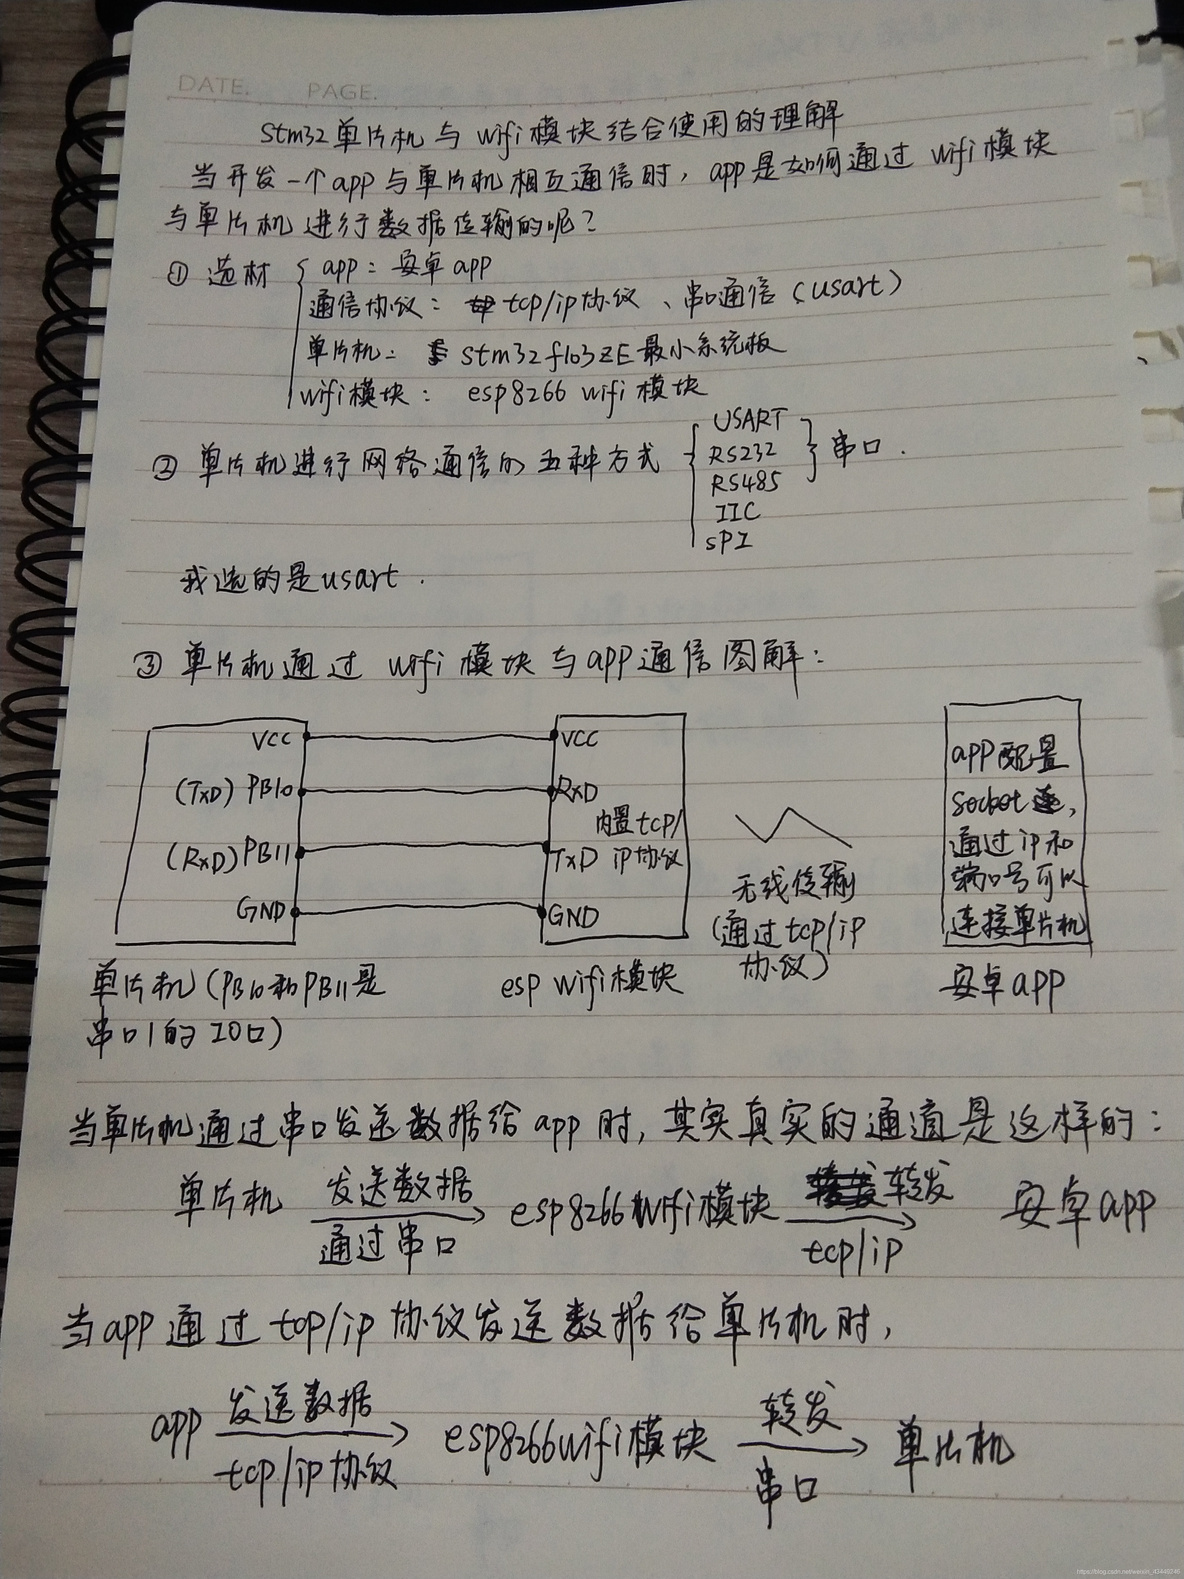 DATE. PAGE.
stm32单片机与wifi模块结合使用的理解
当开发一个app与单片机相互通信时，app是如何通过 wifi模块
与单片机进行数据传输的呢？
① 选材
app：安卓app
通信协议： tcp/ip协议、串口通信（usart）
单片机： stm32f103ZE最小系统板
wifi模块： esp8266 wifi模块
② 单片机进行网络通信的五种方式
USART
RS232
RS485
串口.
IIC
SPI
我选的是usart.
③ 单片机通过 wifi模块与app通信图解：
VCC
(TxD) PB10
(RxD) PB11
GND
VCC
RxD
内置tcp/
TxD ip协议
GND
无线传输
(通过tcp/ip
协议)
app配置
socket,
通过ip和
端口号可以
连接单片机
单片机(PB10和PB11是
串口1的IO口)
esp wifi模块
安卓app
当单片机通过串口发送数据给app时，其实真实的通道是这样的：
单片机 发送数据 通过串口 esp8266wifi模块 转发 tcp/ip 安卓app
当app通过tcp/ip协议发送数据给单片机时，
app 发送数据 tcp/ip协议 esp8266wifi模块 转发 串口 单片机